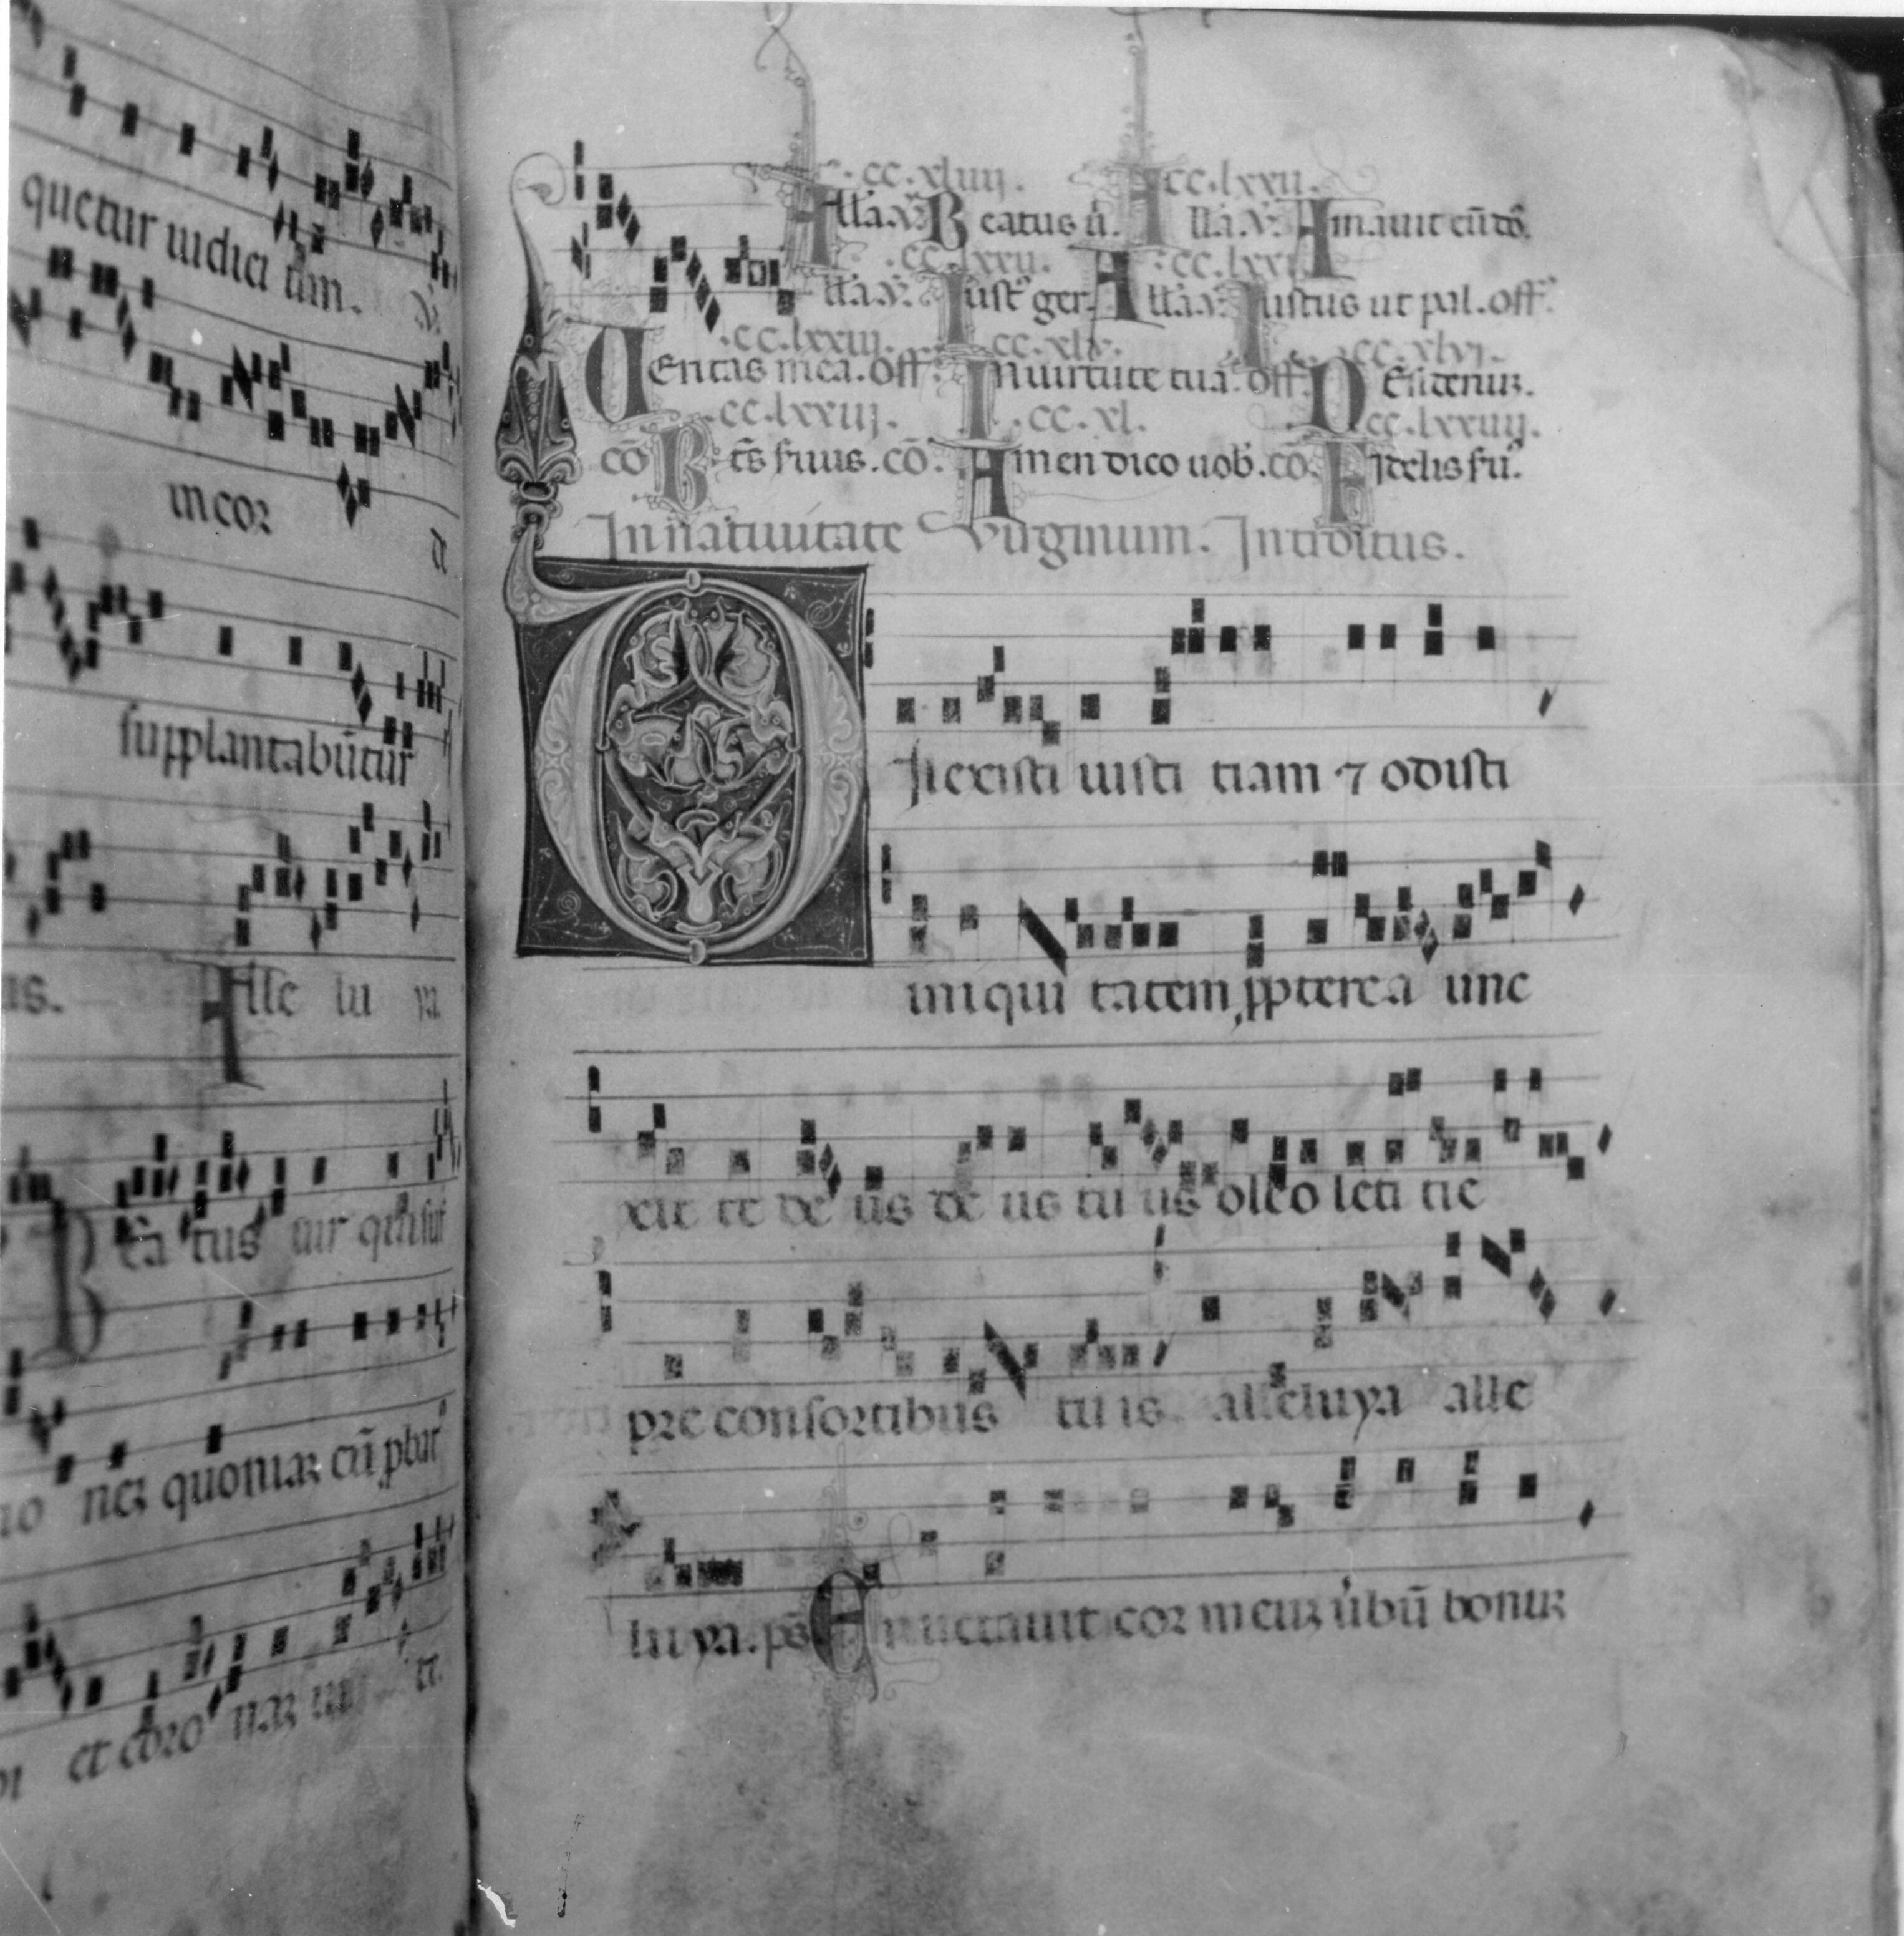 quetur iudici um.
in cor
supplantabūtur
us. Alle lu ya.
Bea tus uir qui suf
nez quoniaz cū pbat
et coro naz ui te
.cc.xliiij. .cc.lxxij.
Alla.ỳ. Beatus ù. Alla.ỳ. Amauit eū dō.
.cc.lxxij. .cc.lxxi
Alla.ỳ. Iust' ger. Alla.ỳ. Iustus ut pal. off.
.cc.lxxiij. .cc.xlv. .cc.xlvj.
Ueritas mea. off. In uirtute tua. off. Desideriuz.
.cc.lxxiij. .cc.xl. .cc.lxxiiij.
cō Bt̄s seruus. cō. Amen dico uob'. cō. Fidelis su'.
In natiuitate Virginum. Introitus.
Dilexisti iusti tiam ⁊ odisti
iniqui tatem ꝓpterea unc
xit te de us de us tu us oleo leti tie
pre consortibus tu is. alleluya alle
lu ya. ps̄ Eructauit cor meuz ùbū bonuz